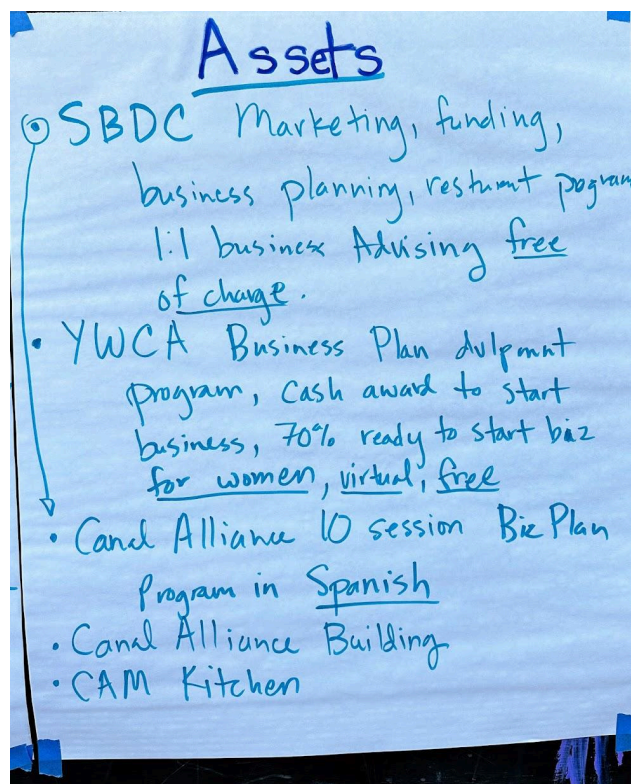 Assets
SBDC Marketing, funding,
business planning, resturnt pogram
1:1 business Advising free
of charge.
• YWCA Business Plan dvlpmnt
program, cash award to start
business, 70% ready to start biz
for women, virtual, free
• Canal Alliance 10 session Biz Plan
Program in Spanish
• Canal Alliance Building
• CAM Kitchen